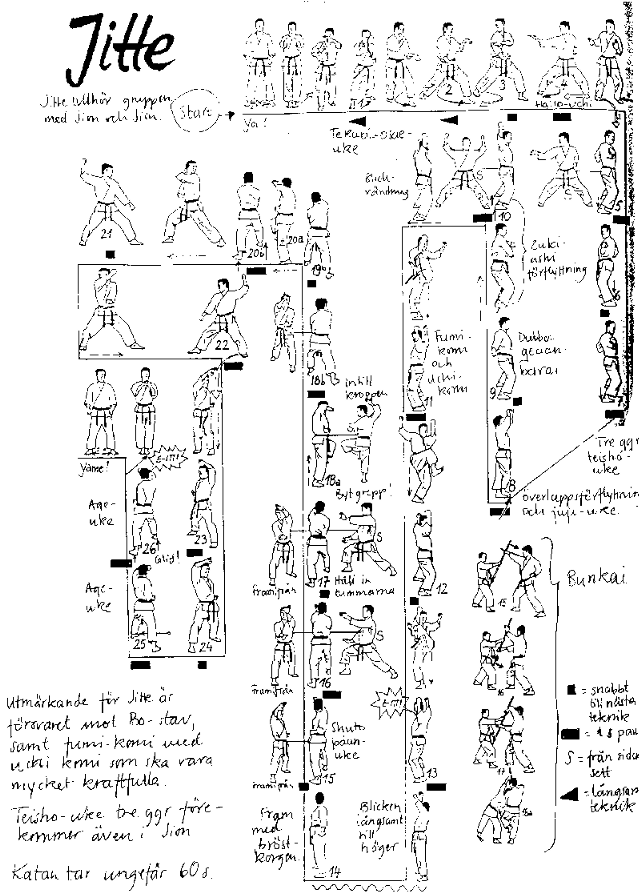 Jitte
Jitte tillhör gruppen
med Jion och Jion.
Start
Ya!
2
3
4
Haito-uchi
Tekubi-osae-
uke
5
S
S
10
Zuki-
ashi
förflyttning
6
21
20b
20a
19b
22
Fumi-
komi
och
uchi-
komi
11
9
Dubbel-
gedan-
barai
7
18b
intill
kroppen
Yame!
E-IT!!
S
18a
Byt grepp!
8
Tre ggr
teisho-
uke
Överloppsförflyttning
och juji-uke.
Age-
uke
26
23
Glid!
framifrån
17
S
Håll in
tummarna
12
15
Bunkai
Age-
uke
25
24
framifrån
16
S
16
= snabbt
till nästa
teknik
= 1 s paus
S = från sidan
sett
= långsam
teknik
Utmärkande för Jitte är
försvaret mot Bo-stav,
samt fumi-komi med
uchi komi som ska vara
mycket kraftfulla.
Teisho-uke tre ggr före-
kommer även i Jion
Katan tar ungefär 60 s.
framifrån
15
E-IT!!
13
17
Fram
med
bröst-
korgen.
14
Blicken
långsamt
till
höger
18a